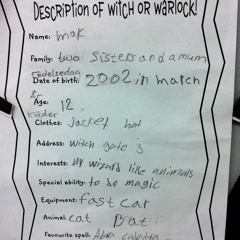 DESCRIPTION OF WITCH OR WARLOCK!
Name: mak
Family: two Sisters and a mum
Födelsedag
Date of birth: 2002 in march
År
Age: 12
Kläder
Clothes: Jacket hat
Address: witch gate 3
Interests: My wizard like animals
Special ability: to do magic
Equipment: fast car
Animal: cat Bat
Favourite spell: Abra